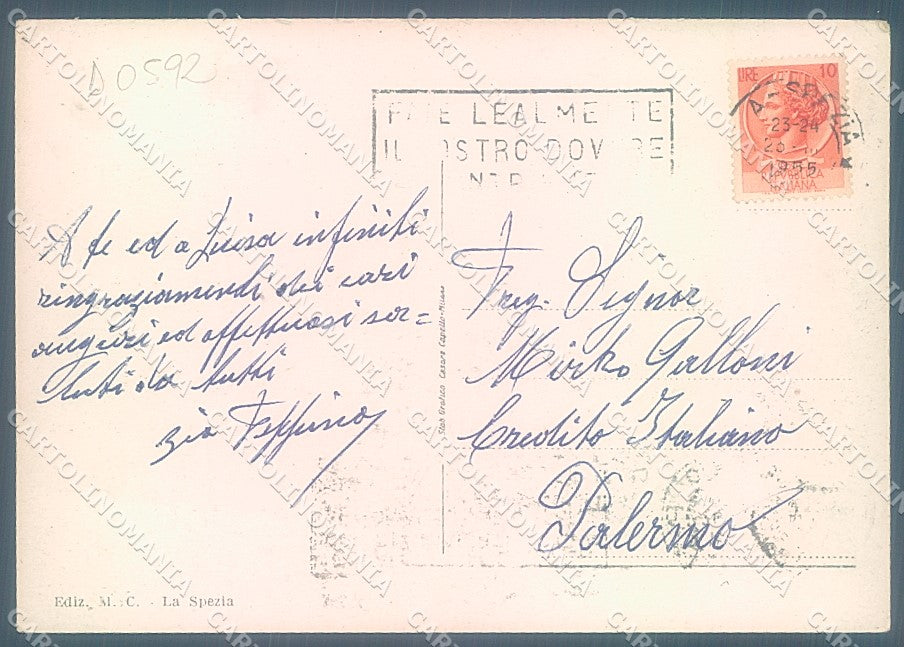 D 0592
FATE LEALMENTE
IL VOSTRO DOVERE
LIRE 10
LA SPEZIA
23-24
1955
REPVBBLICA
ITALIANA
A te ed a Luisa infiniti
ringraziamenti dei cari
auguri ed affettuosi sa=
luti da tutti
zio Peppino
Preg. Signor
Mirko Galloni
Credito Italiano
Palermo
Stab Grafico Cesare Capello-Milano
Ediz. M. C. - La Spezia
CARTOLINOMANIA